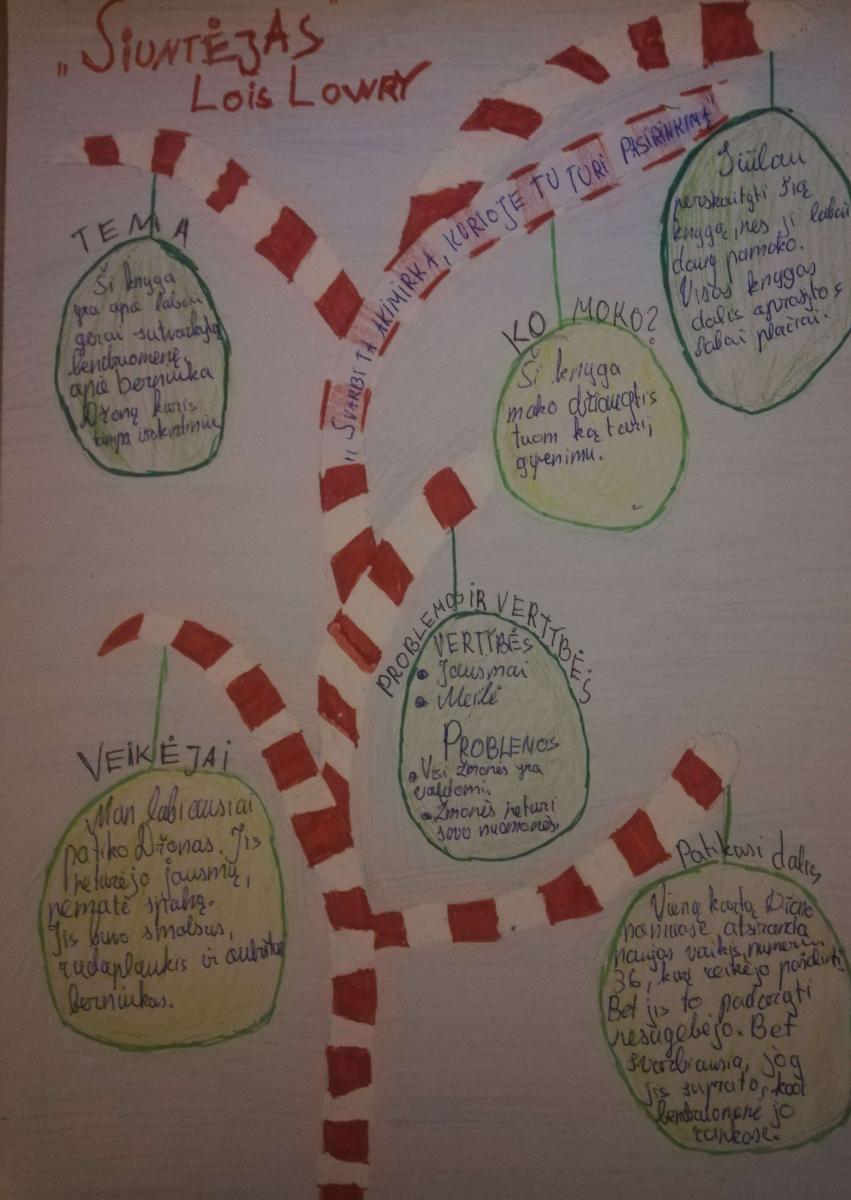 „Siuntėjas
Lois Lowry
TEMA
Ši knyga
yra apie labai
gerai sutvarkytą
bendruomenę,
apie berniuką
Džoną kuris
tampa išskirtiniu
„SVARBI TA AKIMIRKA, KURIOJE TU TURI PASIRINKIMĄ"
Siūlau
perskaityti šią
knygą, nes ji labai
daug pamoko.
Visos knygos
dalis aprašytos
labai plačiai.
KO MOKO?
Ši knyga
moko džiaugtis
tuom ką turi,
gyvenimu.
PROBLEMOS IR VERTYBĖS
VERTYBĖS
• Jausmai
• Meilė
PROBLEMOS
• Visi žmonės yra
valdomi.
• Žmonės neturi
savo nuomonės.
VEIKĖJAI
Man labiausiai
patiko Džonas. Jis
neturėjo jausmų,
nematė spalvų.
Jis buvo smalsus,
rudaplaukis ir aukštas
berniukas.
Patikusi dalis
Vieną kartą Džono
namuose atsirando
naujas vaikis, numeriu
36, kurį reikėjo
Bet jis to padaryti
nesugebėjo. Bet
svarbiausia, jog
jis suprato, kad
bendruomenė jo
rankose.